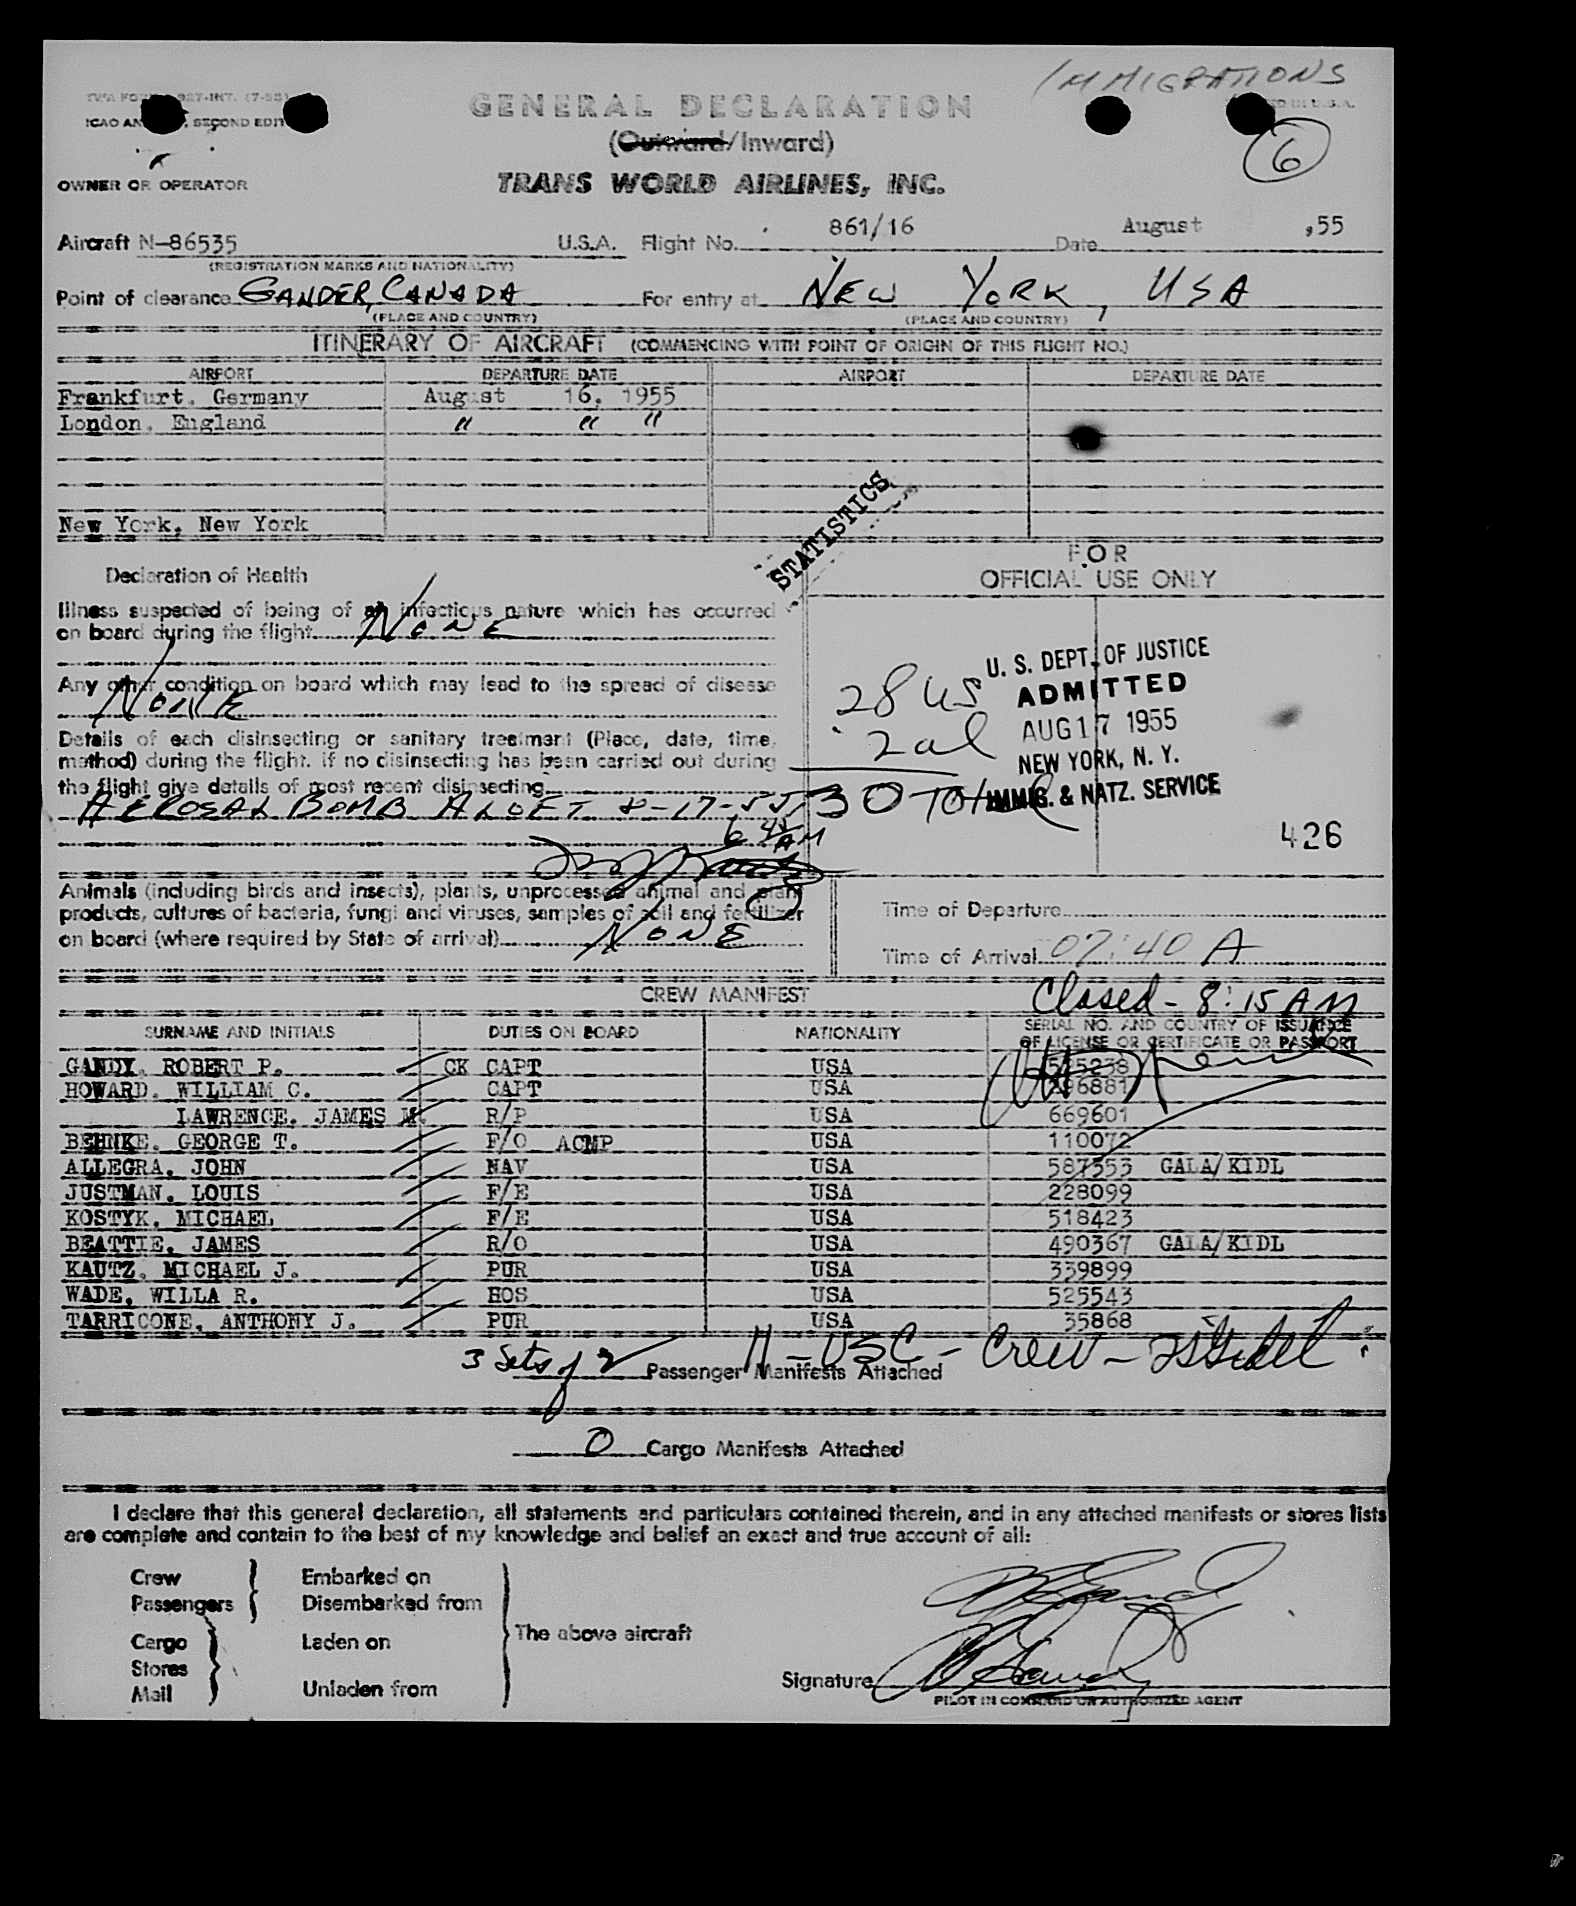 IMMIGRATIONS
GENERAL DECLARATION
ICAO AN SECOND EDIT
(Outward/Inward)
6
OWNER OR OPERATOR
TRANS WORLD AIRLINES, INC.
Aircraft N-86535 U.S.A. Flight No. 861/16 Date August ,55
(REGISTRATION MARKS AND NATIONALITY)
Point of clearance GANDER, CANADA For entry at NEW YORK, USA
(PLACE AND COUNTRY) (PLACE AND COUNTRY)
ITINERARY OF AIRCRAFT (COMMENCING WITH POINT OF ORIGIN OF THIS FLIGHT NO.)
AIRPORT DEPARTURE DATE AIRPORT DEPARTURE DATE
Frankfurt, Germany August 16, 1955
London, England " " "
New York, New York
STATISTICS
FOR
OFFICIAL USE ONLY
Declaration of Health
Illness suspected of being of an infectious nature which has occurred
on board during the flight NONE
Any other condition on board which may lead to the spread of disease
NONE
Details of each disinsecting or sanitary treatment (Place, date, time,
method) during the flight. If no disinsecting has been carried out during
the flight give details of most recent disinsecting
AEROSAL BOMB ALOFT 8-17-55
6 45 AM
28 US
2 al
30 Total
U. S. DEPT. OF JUSTICE
ADMITTED
AUG 17 1955
NEW YORK, N. Y.
IMMIG. & NATZ. SERVICE
426
Animals (including birds and insects), plants, unprocessed animal and plant
products, cultures of bacteria, fungi and viruses, samples of soil and fertilizer
on board (where required by State of arrival) NONE
Time of Departure
Time of Arrival 07:40 A
Closed - 8:15 AM
CREW MANIFEST
SURNAME AND INITIALS DUTIES ON BOARD NATIONALITY SERIAL NO. AND COUNTRY OF ISSUANCE
OF LICENSE OR CERTIFICATE OR PASSPORT
GANDY, ROBERT P. CK CAPT USA
HOWARD, WILLIAM C. CAPT USA 296881
LAWRENCE, JAMES M. R/P USA 669601
BEHNKE, GEORGE T. F/O ACMP USA 110072
ALLEGRA, JOHN NAV USA 587353 GALA/KIDL
JUSTMAN, LOUIS F/E USA 228099
KOSTYK, MICHAEL F/E USA 518423
BEATTIE, JAMES R/O USA 490367 GALA/KIDL
KAUTZ, MICHAEL J. PUR USA 339899
WADE, WILLA R. HOS USA 525543
TARRICONE, ANTHONY J. PUR USA 35868
11 - USC - Crew -
3 Sets of 2 Passenger Manifests Attached
0 Cargo Manifests Attached
I declare that this general declaration, all statements and particulars contained therein, and in any attached manifests or stores lists
are complete and contain to the best of my knowledge and belief an exact and true account of all:
Crew Embarked on
Passengers Disembarked from
The above aircraft
Cargo Laden on
Stores
Mail Unladen from
Signature
PILOT IN COMMAND OR AUTHORIZED AGENT